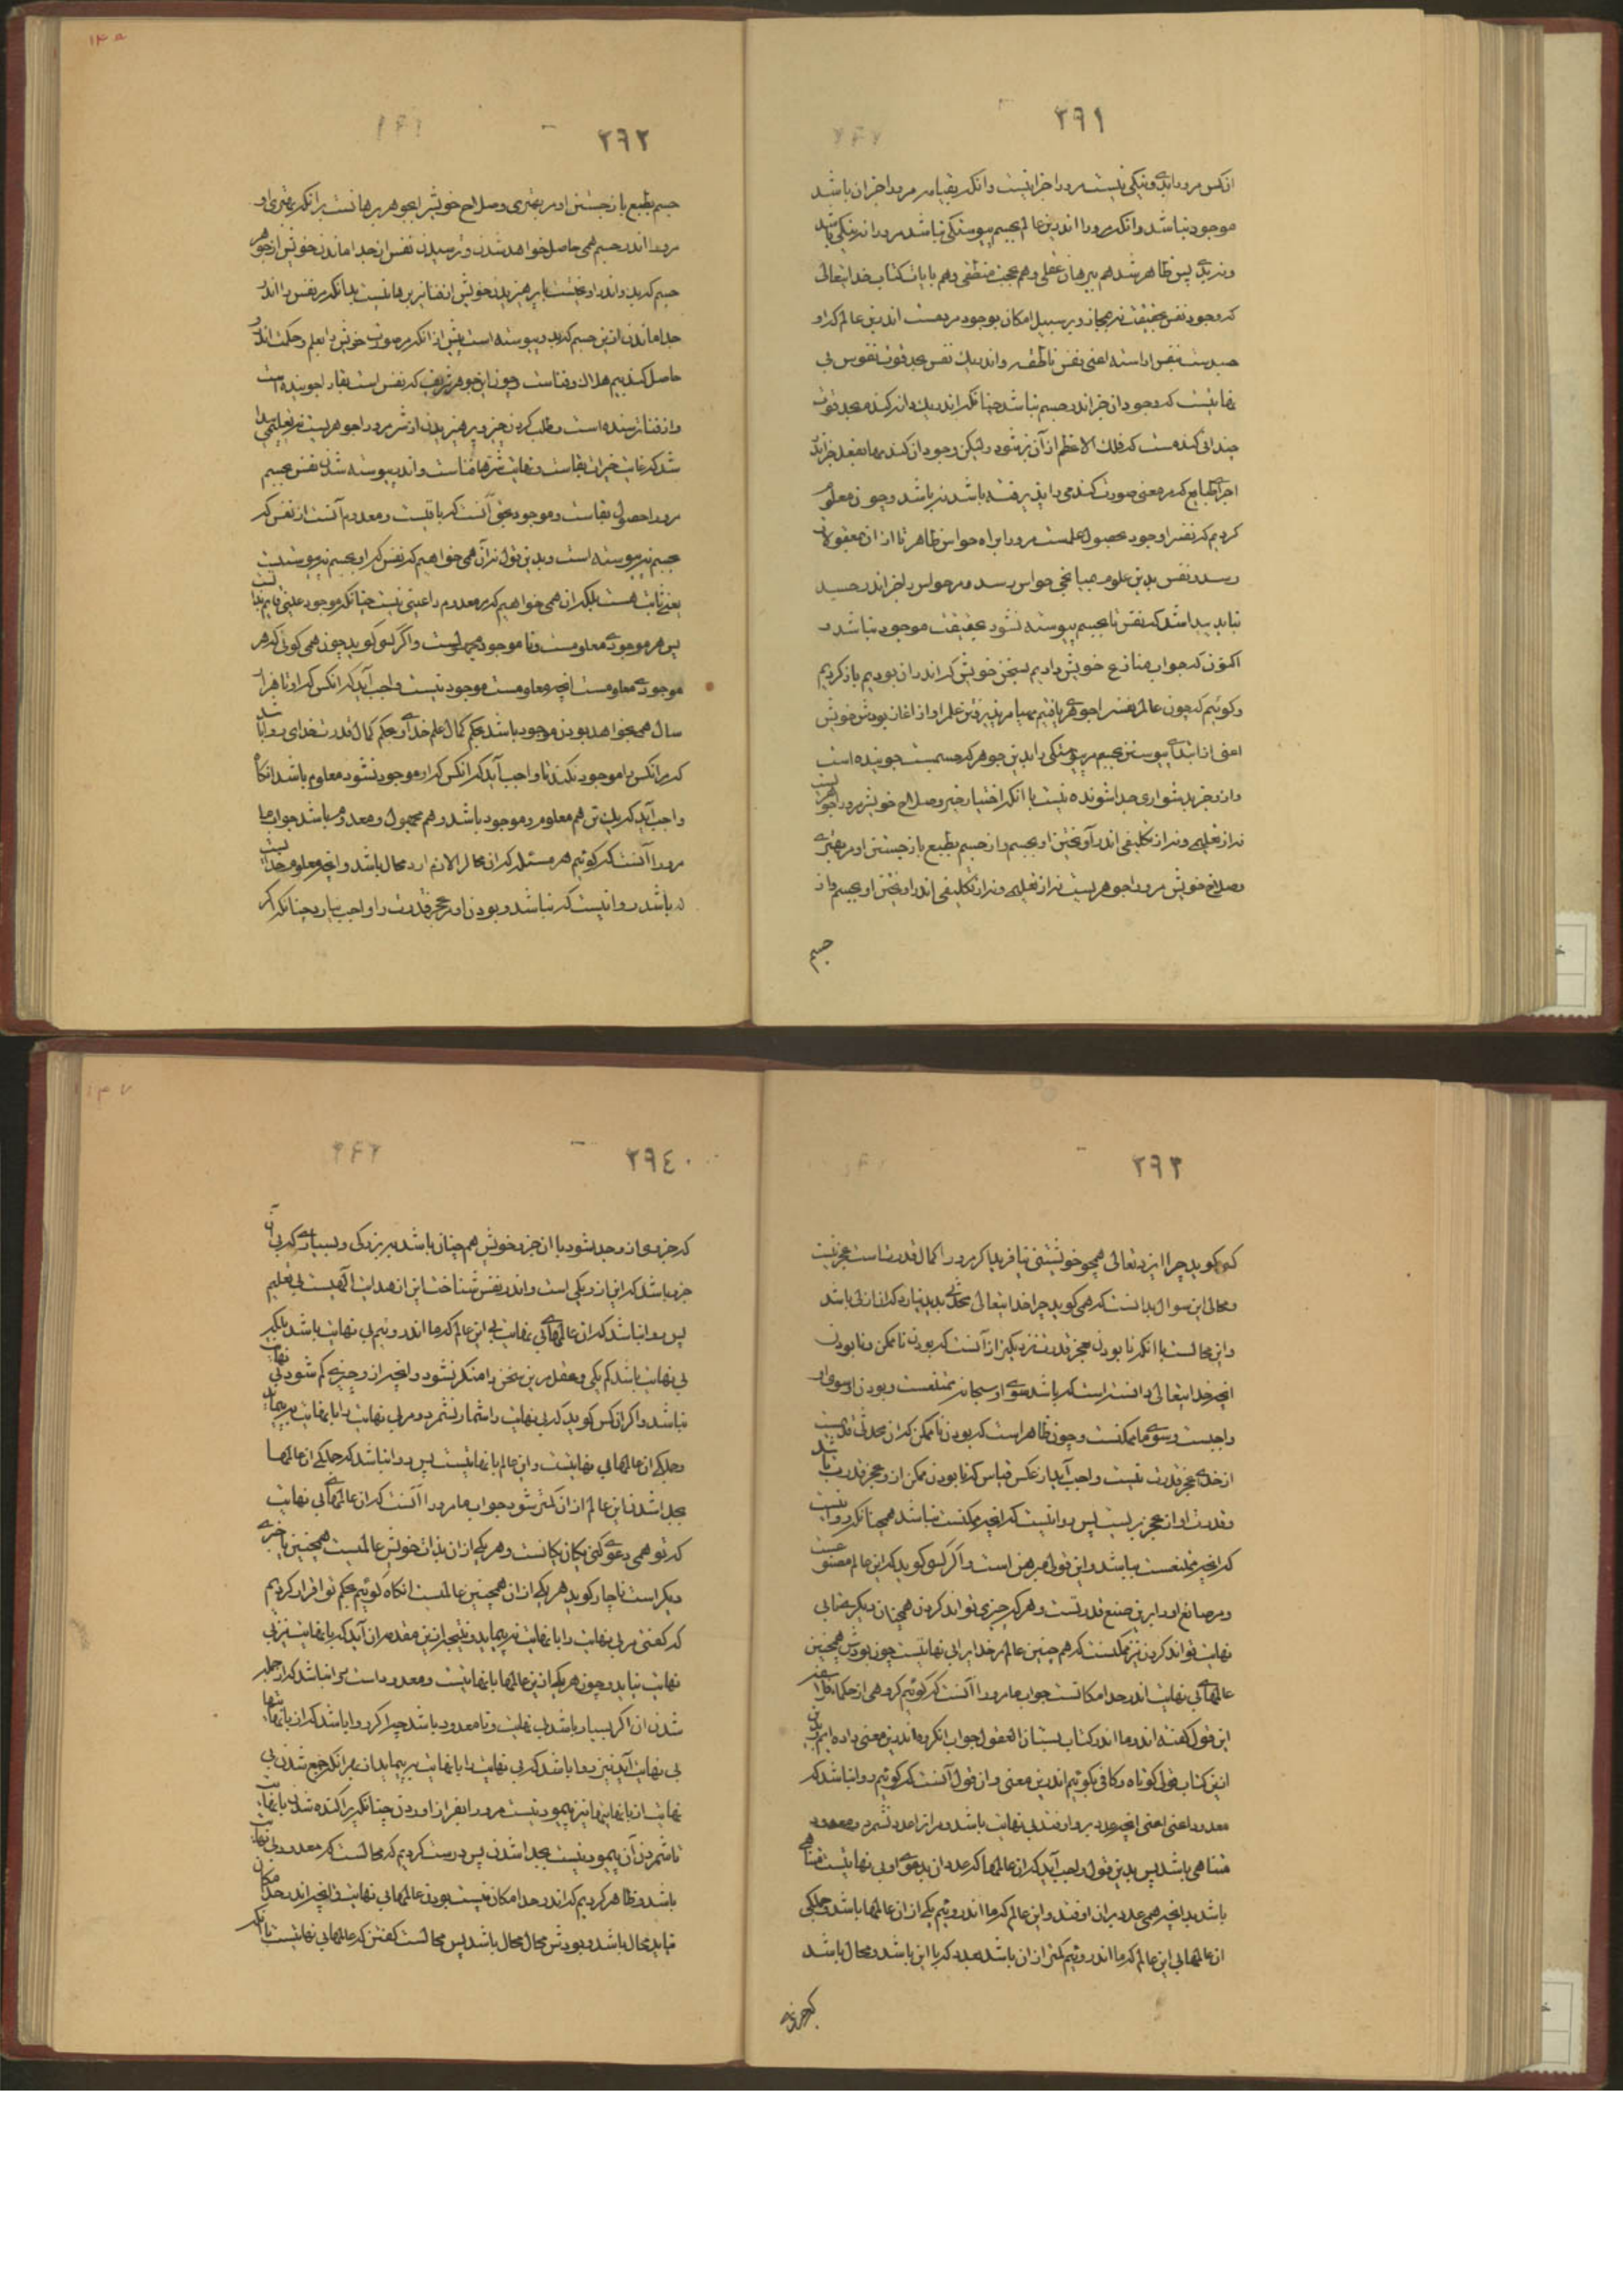 ۲۹۱
ازکس مرورا بدی و نیکی نیست مرورا جزا نیست وانکه بقیامت مرورا جز ان باشد
موجود نباشد وانکه مرورا اندرین عالم بجسم پیوستگی نباشد مرورا نه نیکی باشد
ونه بدی پس ظاهر شد هم ببرهان عقلی وهم بحجت منطقی وهم بایات کتاب خدایتعالی
که وجود نفس بحقیقت نه بمجاز و بر سبیل امکان بوجود مردمست اندرین عالم که او
جسدیست بنفس اراسته اعنی نفس ناطقه واندر یک نفس بحد قوت نفوس بی
نهایتست که وجود ان جز اندر جسم نباشد چنانکه اندر یک دانه گندم بحد قوت
چندانی گندمست که فلک الاعظم از آن پر شود ولیکن وجود ان گندمها بفعل جز اندر
اجزای طبایع که مر معنی صورت گندمی را پذیرفته باشد نباشد وچون معلوم
کردیم که نفس را وجود بحصول علمست مرورا براه حواس ظاهر تا از ان بمعقولات
رسد ونفس بدین علوم بمیانجی حواس رسد ومر حواس را جز اندر جسد
نیابد پیدا شد که نفس تا بجسم پیوسته نشود بحقیقت موجود نباشد و
اکنون که جواب منازع خویش دادیم بسخن خویش که اندر ان بودیم باز گردیم
وگوئیم که چون عالم نفس را جوهری یافتیم مهیا مر پذیرفتن علم را و از اغاز بودش خویش
اعنی از ابتدای پیوستن بجسم مر پیوستگی را بدین جوهر که جسمست جوینده است
واز وجز بدشواری جدا شونده نیست با انکه اختیار خیر وصلاح خویش مرورا جوهریست
نه از تعلیمی ونه از تکلیفی اندر آویختن او بجسم واز جسم بطبع باز جستن او مر بهتری
وصلاح خویش مرورا جوهریست نه از تعلیمی ونه از تکلیفی اندر اویختن او بجسم واز
جسم
۲۹۲
جسم بطبع باز جستن او مر بهتری وصلاح خویش را بجوهر برهانست بر انکه بهتری او
مرورا اندر جسم همی حاصل خواهد شدن وترسیدن نفس از جدا ماندن خویش از جوهر
جسم که بدو اندر اویخته است با پرهیزیدن خویش از فنا برین هانیست بدانکه مر نفس را اندر
جدا ماندن از ین جسم که بدو پیوسته است پیش از انکه مر صورت خویش را بعلم وحکمت اندرو
حاصل کند بیم هلاک وفناست وچون این جوهر شریف که نفس است بقا را جوینده است
واز فنا ترسنده است وطلب کردن خیر وپرهیزیدن از شر مرورا جوهریست نه تعلیمی پیدا
شد که غایت خیرات بقاست ونهایت شرها فناست واندر پیوسته شدن نفس بجسم
مرورا حصول بقاست وموجود بحق آنست که باقیست ومعدوم آنست از نفس که
بجسم نه پیوسته است وبدین قول نه آن همی خواهیم که نفس که او بجسم نه پیوستست
بعینه ثابت هست بلکه ان همی خواهیم که مر معدوم را عینی نیست چنانکه موجود عینی قایم بذاتست
پس هر موجودی معلومست ونا موجود مجهولست واگر کسی گوید چون همی گوئی که هر
موجودی معلومست انچه معلومست موجود نیست واجب آید که انکس که او تا هزار
سال همی بخواهد بودن موجود باشد بحکم کمال علم خدای وبحکم کمال قدرت خدای روا باشد
که مر انکس را موجود نکند تا واجب آید که انکس که او موجود نشود معلوم باشد انگاه
واجب آید که یک تن هم معلوم وموجود باشد وهم مجهول ومعدوم باشد جواب ما
مرورا آنست که گوئیم هر مسئله که ازان محال لازم اید محال باشد وانچه معلوم خدایست
که باشد روا نیست که نباشد وبودن او عجز قدرت را واجب نیارد چنانکه اگر
۲۹۳
کسی گوید چرا ایزد تعالی همچو خویشتنی نیافرید اگر مرورا کمال قدرتست عجز نیست
ومحالی این سوال بدانست که همی گوید چرا خدایتعالی محدثی پدید نیارد که ان ازلی باشد
واین محالست با انکه نا بودن عجز قدرت نزدیکتر از آنست که بودن نا ممکن ونا بودن
انچه خدایتعالی دانسته است که باشد سوی او سبحانه ممتنعست وبودن او سوی او
واجبست وسوی ما ممکنست وچون ظاهر است که بودن نا ممکن که ان محدثی قدیمست
از خدای عجز قدرت نیست واجب آید از عکس قیاس که نا بودن ممکن ازو عجز قدرت باشد
وقدرت او از عجز بریست پس روا نیست که انچه ممکنست نباشد همچنانکه روا نیست
که انچه ممتنعست بباشد واین قولی مبرهن است واگر کسی گوید که این عالم مصنوعست
ومر صانع او را برین صنع قدرتست وهر که چیزی تواند کردن همچنان دیگر چیزهای بی
نهایت تواند کردن نیز ممکنست که هم چنین عالم مر خدایرا بی نهایتست چون بودش همچنین
عالمهای بی نهایت اندر حد امکانست جواب ما مرورا آنست که گوئیم گروهی از حکماء فلاسفه
این قول گفته اند وما اندر کتاب بستان العقول جواب انگروه اندرین معنی داده ایم وبدین
انیز کتاب قولی کوتاه وکافی بگوئیم اندرین معنی واز قول آنست که گوئیم روا نباشد که
معدود اعنی اعنی انچه عدد برو اوفتد بی نهایت باشد ومر انرا عدد نشمرد ومعدود
متناهی باشد پس بدین قول واجب آید که ان عالمها که عدد ان بدعوی او بی نهایتست متناهی
باشد بدانچه همی عدد بران اوفتد واین عالم که ما اندروئیم یکی از ان عالمها باشد وجملگی
ان عالمها بی این عالم که ما اندروئیم کمتر از ان باشد بعدد که با این باشد ومحال باشد
که چیزی
۲۹۴
که چیزی ازو جدا شود با ان جزو خویش هم چنان باشد ببزرگی وبسیاری که بی آن
جزو باشد که این ازو یکی است واندر نفس شناخت این از هدایت الهیست بی تعلیم
پس روا نباشد که ان عالمهای بی نهایت بی این عالم که ما اندروئیم بی نهایت باشد بلکه
بی نهایت باشد کم یکی وعقل مر ین سخن را منکر نشود وانچه ازو چیزی کم شود بی نهایت
نباشد واگر انکس گوید که بی نهایت را شمار نشمرد ومر بی نهایت را با نهایت نپیماید
وجملگی ان عالمها بی نهایتست واین عالم با نهایتست پس روا نباشد که جملگی ان عالمها
بجدا شدن این عالم از ان کمتر شود جواب ما مرورا آنست که ان عالمهای بی نهایت
که تو همی دعوی کنی یکان یکانست وهر یکی ازان بذات خویش عالمیست همچنین یا چیزی
دیگر است ناچار گوید هر یکی از ان همچنین عالمیست انگاه گوئیم بحکم تو اقرار کردیم
که گفتی مر بی نهایت را با نهایت نپیماید ونتیجه از ین مقدمه ان آید که با نهایت نیز بی
نهایت نیاید وچون هر یکی از ین عالمها با نهایتست ومعدود است روا نباشد که از جمله
شدن ان اگر بسیار باشد بی نهایت ونا معدود باشد چرا که اگر روا باشد که از با نهایت
بی نهایت آید نیز روا باشد که بی نهایت را با نهایت بپیماید از بهر انکه جمع شدن بی
نهایت از با نهایتها نیز پیمودنیست مرورا بفراز اوردن چنانکه پراکنده شدن با نهایت
تا شمردن آن پیمودنیست بجدا شدن پس درست کردیم که محالست که معدود بی نهایت
باشد وظاهر کردیم که اندر حد امکان نیست بودن عالمهای بی نهایت وانچه اندر حد امکان
نیاید محال باشد وبودش محال محال باشد پس محالست گفتن که عالمها بی نهایتست با انکه